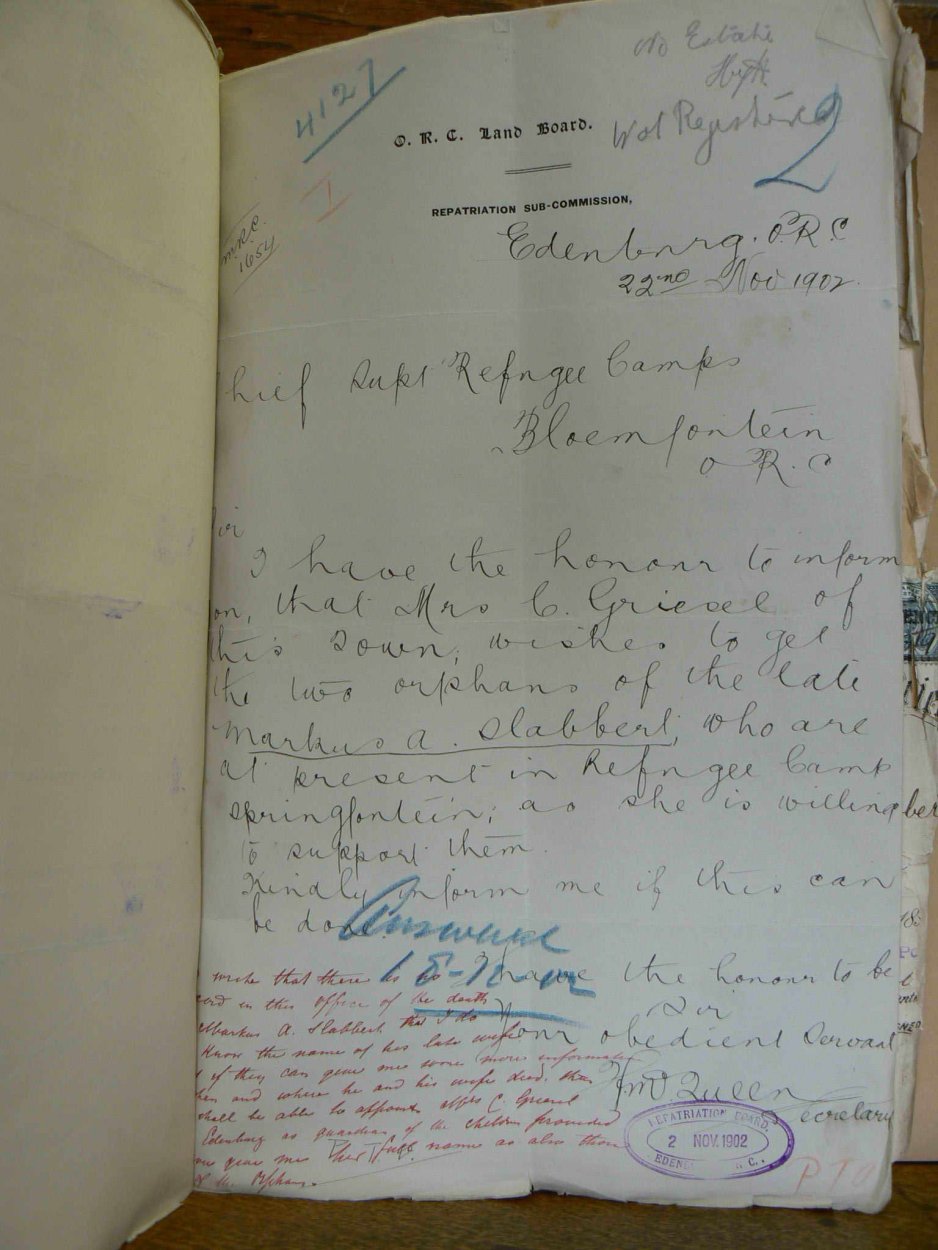 No Estate
4127
Not Registered
2
O. R. C. Land Board.
I
REPATRIATION SUB-COMMISSION,
M.R.C.
1654
Edenburg. O.R.C
22nd Nov 1902.
hief Supt Refugee Camps
Bloemfontein
O R. C
ir
I have the honour to inform
ou, that Mrs C. Griesel of
this Town, wishes to get
the two orphans of the late
Markus A. Slabbert, who are
at present in Refugee Camp
Springfontein; as she is willing
to support them.
Kindly inform me if this can
be done.
Answered
I have the honour to be
Sir
Your obedient Servant
H. McQueen
Secretary
write that there is no
cord in this office of the death
Markus A. Slabbert that I do
Know the name of his late wife
if they can give me some more informati
hen and where he and his wife died, then
shall be able to appoint Mrs C. Griesel
Edenburg as guardian of the children provided
give me her full name as also those
Orphans.
REPATRIATION BOARD.
2 NOV. 1902
EDENB C.
P T O